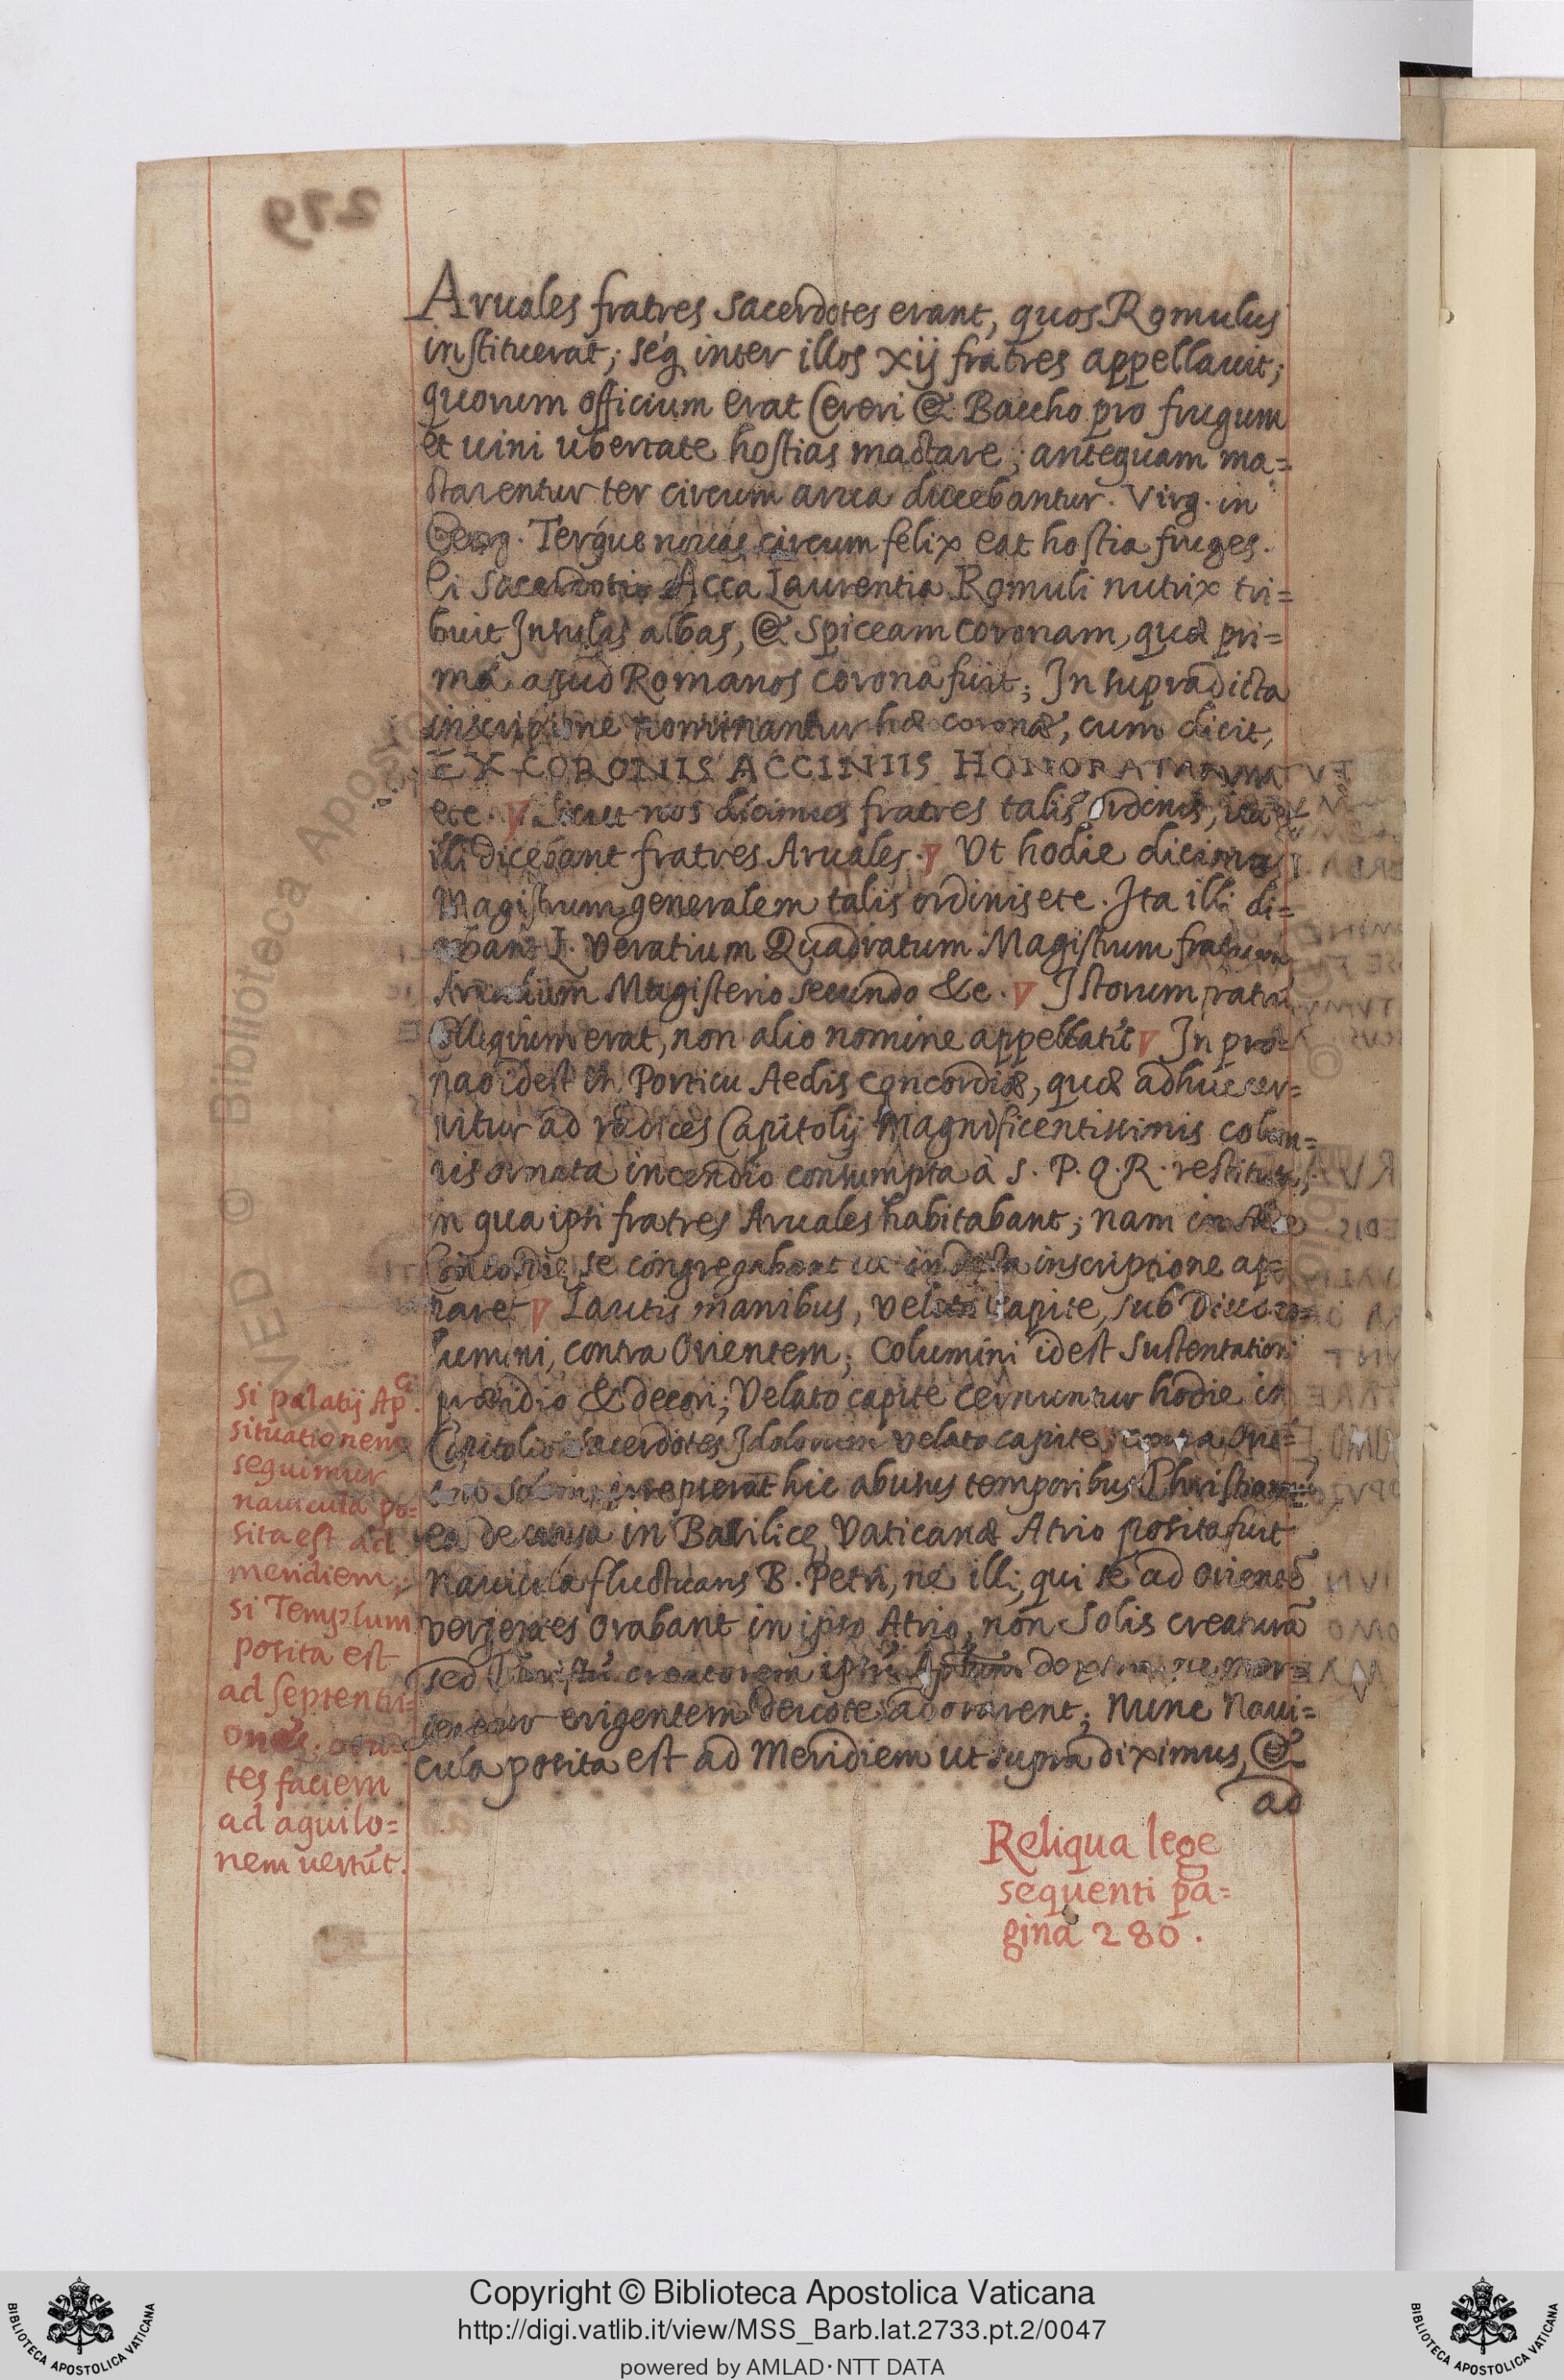 279
Aruales fratres Sacerdotes erant, quos Romulus
instituerat; seq́ inter illos xij fratres appellauit;
quorum officium erat Cereri & Baccho pro frugum
et uini ubertate hostias mactare; antequam ma=
ctarentur ter circum arua ducebantur. Virg. in
Georg. Terq́ue nouas circum felix eat hostia fruges.
Ei Sacerdotio Acca Laurentia Romuli nutrix tri=
buit Insulas albas, & Spiceam coronam, quæ pri=
ma apud Romanos corona fuit; In supradicta
inscriptione nominantur hæ coronæ, cum dicit,
EX CORONIS ACCINIIS HONORATARVM
etc. Sicut nos dicimus fratres talis ordinis, ita et
illi dicebant fratres Aruales. Vt hodie dicimus
Magistrum generalem talis ordinis etc. Ita illi di=
cebant L. Veratium Quadratum Magistrum fratrum
Arualium Magisterio secundo &c. Istorum fratrũ
Collegium erat, non alio nomine appellatũ In pro=
nao idest in Porticu Aedis Concordiæ, quæ adhuc cer=
nitur ad radices Capitolij Magnificentissimis colum=
nis ornata incendio consumpta à S. P. Q. R. restituta,
in qua ipsi fratres Aruales habitabant; nam in Æde
Concordiæ se congregabant ut in dicta inscriptione ap=
paret Lautis manibus, velato capite, sub Diuo co=
lumini, contra Orientem; Columini idest Sustentationi
præsidio & decori; Velato capite cernuntur hodie in
Capitolio Sacerdotes Idolorum velato capite, contra Ori=
irrepserat hic abusus temporibus Christianorũ
ea de causa in Basilicę Vaticanæ Atrio posita fuit
Nauicula fluctuans B. Petri, ne illi, qui se ad Orientẽ
vergentes orabant in ipso Atrio, non Solis creaturã
sed Christũ creatorem ipsũ Aptũm dextra ne mer=
geretur erigentem deuote adorarent; Nunc Naui=
cula posita est ad Meridiem ut supra diximus, &
ad
si palatij Ap.ci
situationem
sequimur
nauicula po=
sita est ad
meridiem,
si Templum
posita est
ad septentri=
onẽ.
tes faciem
ad aquilo=
nem uertũt.
Reliqua lege
sequenti pa=
gina 280.
Copyright © Biblioteca Apostolica Vaticana
http://digi.vatlib.it/view/MSS_Barb.lat.2733.pt.2/0047
powered by AMLAD·NTT DATA
BIBLIOTECA APOSTOLICA VATICANA
BIBLIOTECA APOSTOLICA VATICANA